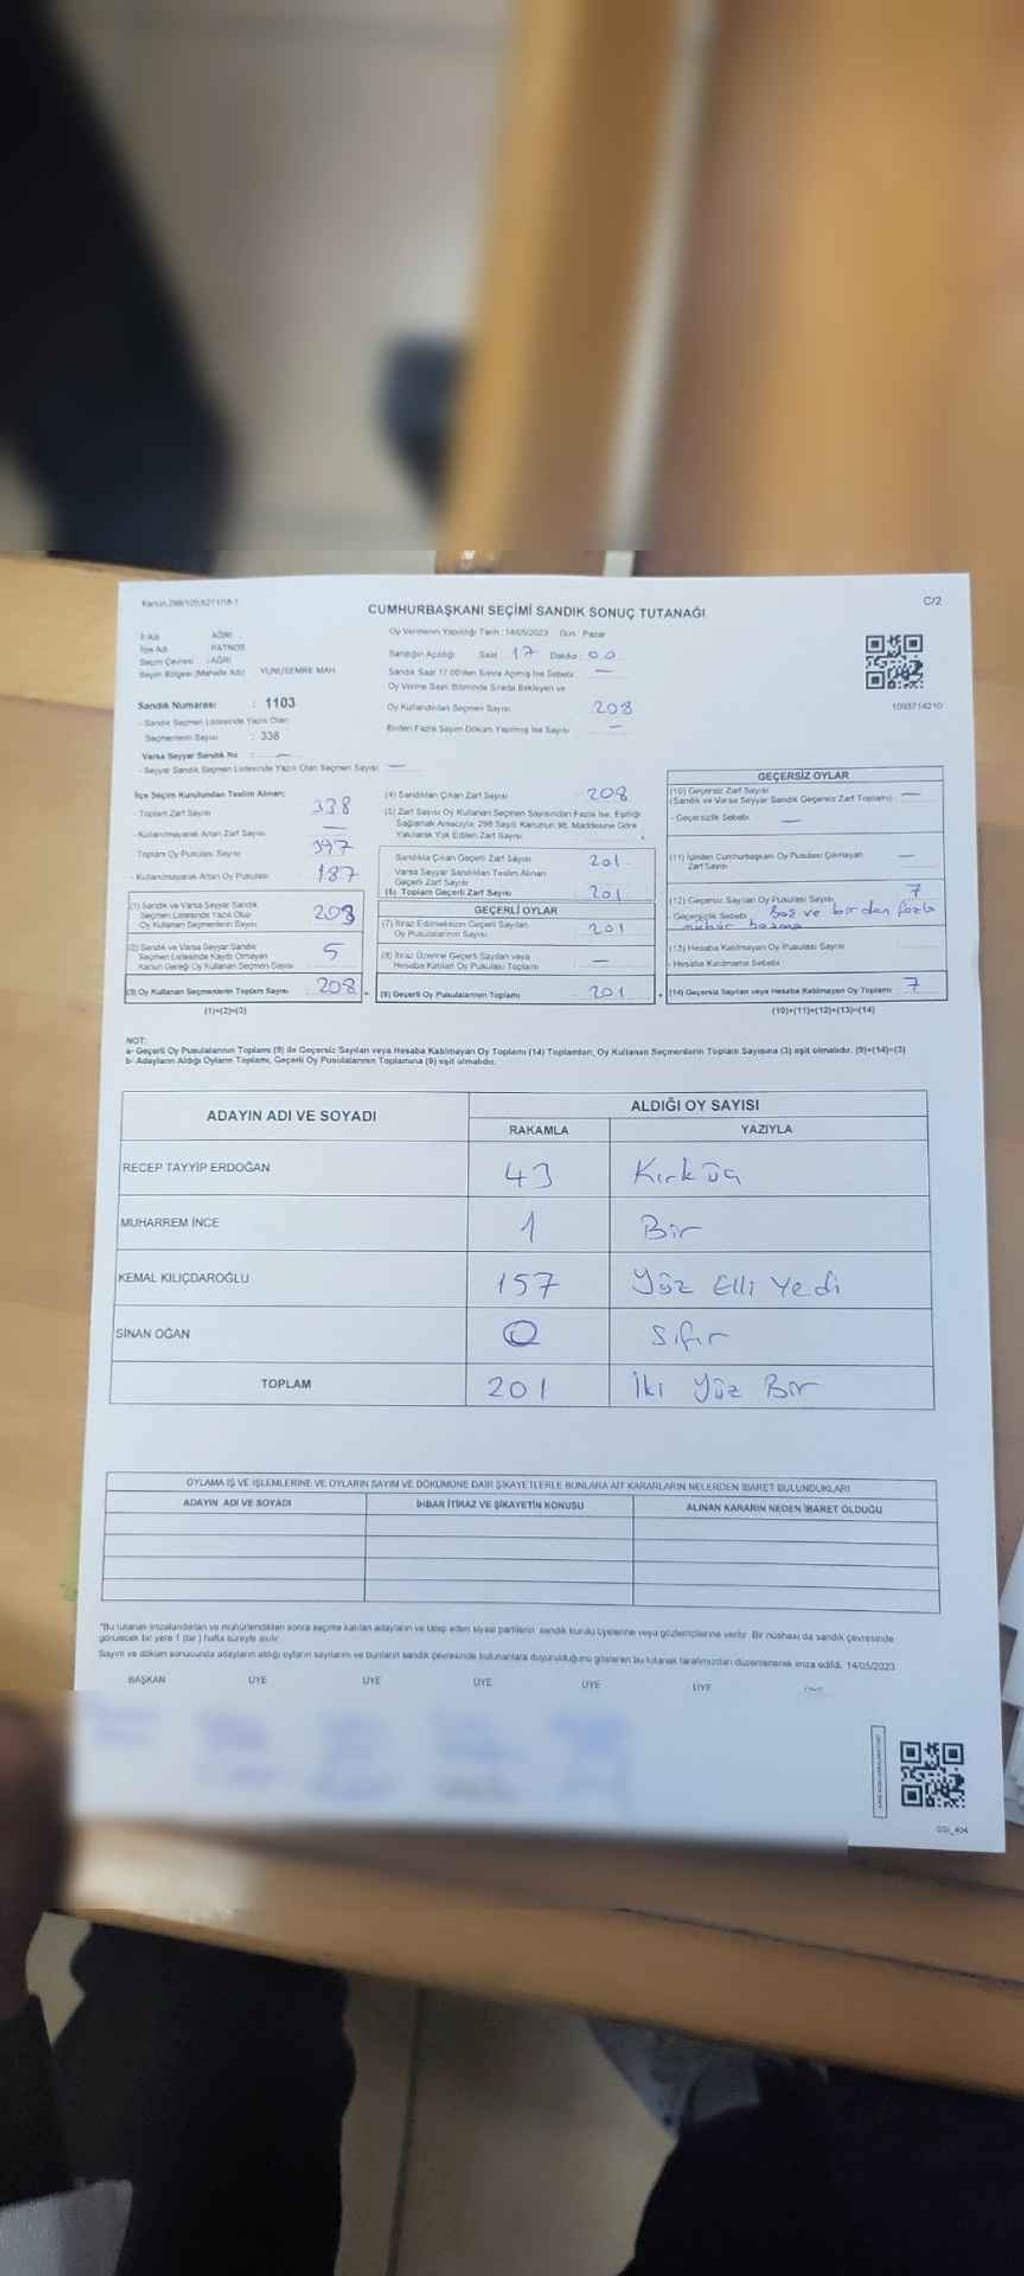 CUMHURBAŞKANI SEÇİMİ SANDIK SONUÇ TUTANAĞI
C/2
Oy Vermenin Yapıldığı Tarih : 14/05/2023 Gün : Pazar
İl Adı : AĞRI
İlçe Adı : PATNOS
Seçim Çevresi : AĞRI
Seçim Bölgesi (Mahalle Adı) : YUNUSEMRE MAH
Sandığın Açıldığı Saat : 17 Dakika : 00
Sandık Saat 17.00'den Sonra Açılmış İse Sebebi : —
Oy Verme Saati Bitiminde Sırada Bekleyen ve
Oy Kullandırılan Seçmen Sayısı 208
Birden Fazla Sayım Döküm Yapılmış İse Sayısı —
1093714210
Sandık Numarası : 1103
- Sandık Seçmen Listesinde Yazılı Olan
Seçmenlerin Sayısı : 338
Varsa Seyyar Sandık No : —
- Seyyar Sandık Seçmen Listesinde Yazılı Olan Seçmen Sayısı —
İlçe Seçim Kurulundan Teslim Alınan;
- Toplam Zarf Sayısı 338
- Kullanılmayarak Artan Zarf Sayısı —
Toplam Oy Pusulası Sayısı 397
- Kullanılmayarak Artan Oy Pusulası 187
(1) Sandık ve Varsa Seyyar Sandık
Seçmen Listesinde Yazılı Olup
Oy Kullanan Seçmenlerin Sayısı 203
(2) Sandık ve Varsa Seyyar Sandık
Seçmen Listesinde Kaydı Olmayan
Kanun Gereği Oy Kullanan Seçmen Sayısı 5
(3) Oy Kullanan Seçmenlerin Toplam Sayısı 208
(1)+(2)=(3)
(4) Sandıktan Çıkan Zarf Sayısı 208
(5) Zarf Sayısı Oy Kullanan Seçmen Sayısından Fazla İse, Eşitliği
Sağlamak Amacıyla, 298 Sayılı Kanunun 98. Maddesine Göre
Yakılarak Yok Edilen Zarf Sayısı
Sandıkta Çıkan Geçerli Zarf Sayısı 201
Varsa Seyyar Sandıktan Teslim Alınan
Geçerli Zarf Sayısı
(6) Toplam Geçerli Zarf Sayısı 201
GEÇERLİ OYLAR
(7) İtiraz Edilmeksizin Geçerli Sayılan
Oy Pusulalarının Sayısı 201
(8) İtiraz Üzerine Geçerli Sayılan veya
Hesaba Katılan Oy Pusulası Toplamı —
(9) Geçerli Oy Pusulalarının Toplamı 201
GEÇERSİZ OYLAR
(10) Geçersiz Zarf Sayısı —
(Sandık ve Varsa Seyyar Sandık Geçersiz Zarf Toplamı)
- Geçersizlik Sebebi —
(11) İçinden Cumhurbaşkanı Oy Pusulası Çıkmayan
Zarf Sayısı —
(12) Geçersiz Sayılan Oy Pusulası Sayısı 7
- Geçersizlik Sebebi Boş ve birden fazla
mühür basma
(13) Hesaba Katılmayan Oy Pusulası Sayısı
- Hesaba Katılmama Sebebi
(14) Geçersiz Sayılan veya Hesaba Katılmayan Oy Toplamı 7
(10)+(11)+(12)+(13)=(14)
NOT:
a- Geçerli Oy Pusulalarının Toplamı (9) ile Geçersiz Sayılan veya Hesaba Katılmayan Oy Toplamı (14) Toplamları, Oy Kullanan Seçmenlerin Toplam Sayısına (3) eşit olmalıdır. (9)+(14)=(3)
b- Adayların Aldığı Oyların Toplamı, Geçerli Oy Pusulalarının Toplamına (9) eşit olmalıdır.
ADAYIN ADI VE SOYADI
ALDIĞI OY SAYISI
RAKAMLA YAZIYLA
RECEP TAYYİP ERDOĞAN 43 Kırk üç
MUHARREM İNCE 1 Bir
KEMAL KILIÇDAROĞLU 157 Yüz Elli Yedi
SİNAN OĞAN 0 Sıfır
TOPLAM 201 İki Yüz Bir
OYLAMA İŞ VE İŞLEMLERİNE VE OYLARIN SAYIM VE DÖKÜMÜNE DAİR ŞİKAYETLERLE BUNLARA AİT KARARLARIN NELERDEN İBARET BULUNDUKLARI
ADAYIN ADI VE SOYADI İHBAR İTİRAZ VE ŞİKAYETİN KONUSU ALINAN KARARIN NEDEN İBARET OLDUĞU
"Bu tutanak imzalandıktan ve mühürlendikten sonra seçime katılan adayların ve talep eden siyasi partilerin sandık kurulu üyelerine veya gözlemcilerine verilir. Bir nüshası da sandık çevresinde
görülecek bir yere 1 (bir) hafta süreyle asılır.
Sayım ve döküm sonucunda adayların aldığı oyların sayılarını ve bunların sandık çevresinde bulunanlara duyurulduğunu gösteren bu tutanak tarafımızdan düzenlenerek imza edildi. 14/05/2023
BAŞKAN ÜYE ÜYE ÜYE ÜYE ÜYE